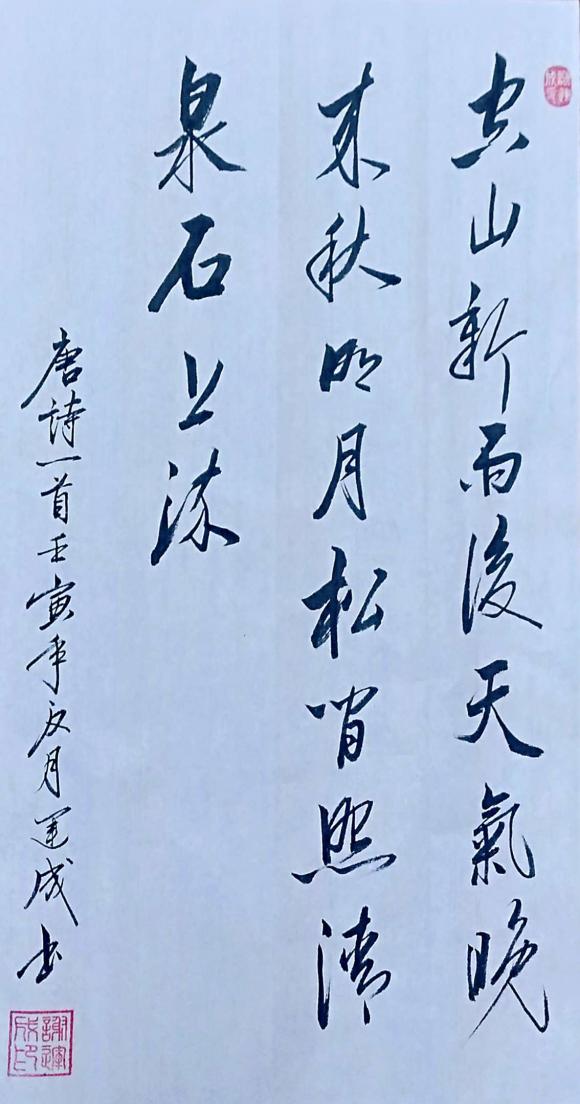 空山新雨後天氣晚
来秋明月松間照清
泉石上流
唐詩一首壬寅年夏月運成书
謝運成印